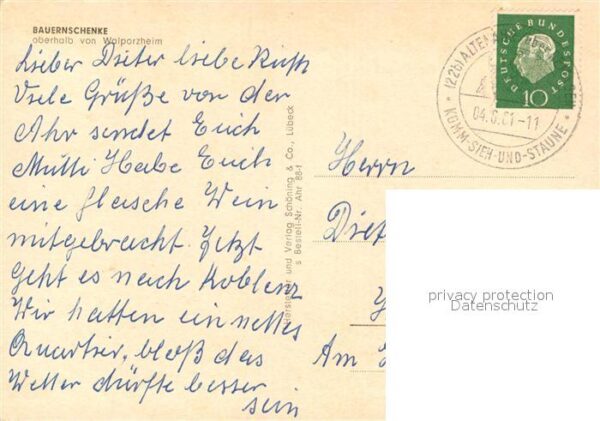 BAUERNSCHENKE
oberhalb von Walporzheim
Lieber Dieter liebe Ruth
Viele Grüße von der
Ahr sendet Euch
Mutti Habe Euch
eine flasche Wein
mitgebracht. Jetzt
geht es nach Koblenz
Wir hatten ein nettes
Quartier, bloß das
Wetter dürfte besser
sein
Hersteller und Verlag Schöning & Co., Lübeck
s Bestell-Nr. Ahr 88-1
DEUTSCHE BUNDESPOST
10
(22b) ALTENA
04.6.61-11
KOMM-SIEH-UND-STAUNE
Herrn
Am
privacy protection
Datenschutz